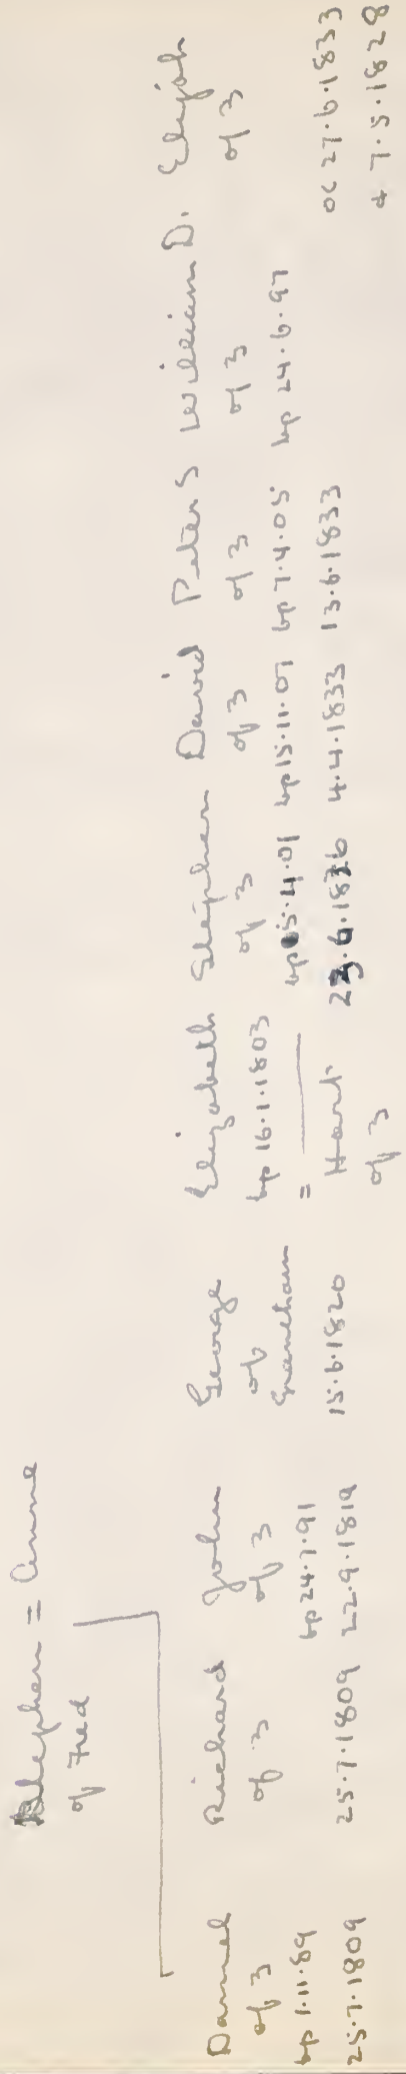 Stephen = Anne
of Fred
Daniel
of 3
bp 1.11.89
25.7.1809
Richard
of 3
25.7.1809
John
of 3
bp 24.7.91
22.9.1819
George
of
Grantham
15.6.1820
Elizabeth
bp 16.1.1803
=
Hart
of 3
Stephen
of 3
bp 5.4.01
6.1826
David
of 3
bp 15.11.07
4.4.1833
Peter S
of 3
bp 7.4.05
13.6.1833
William D.
of 3
bp 24.6.97
Elijah
of 3
oc 27.6.1833
d 7.5.1828